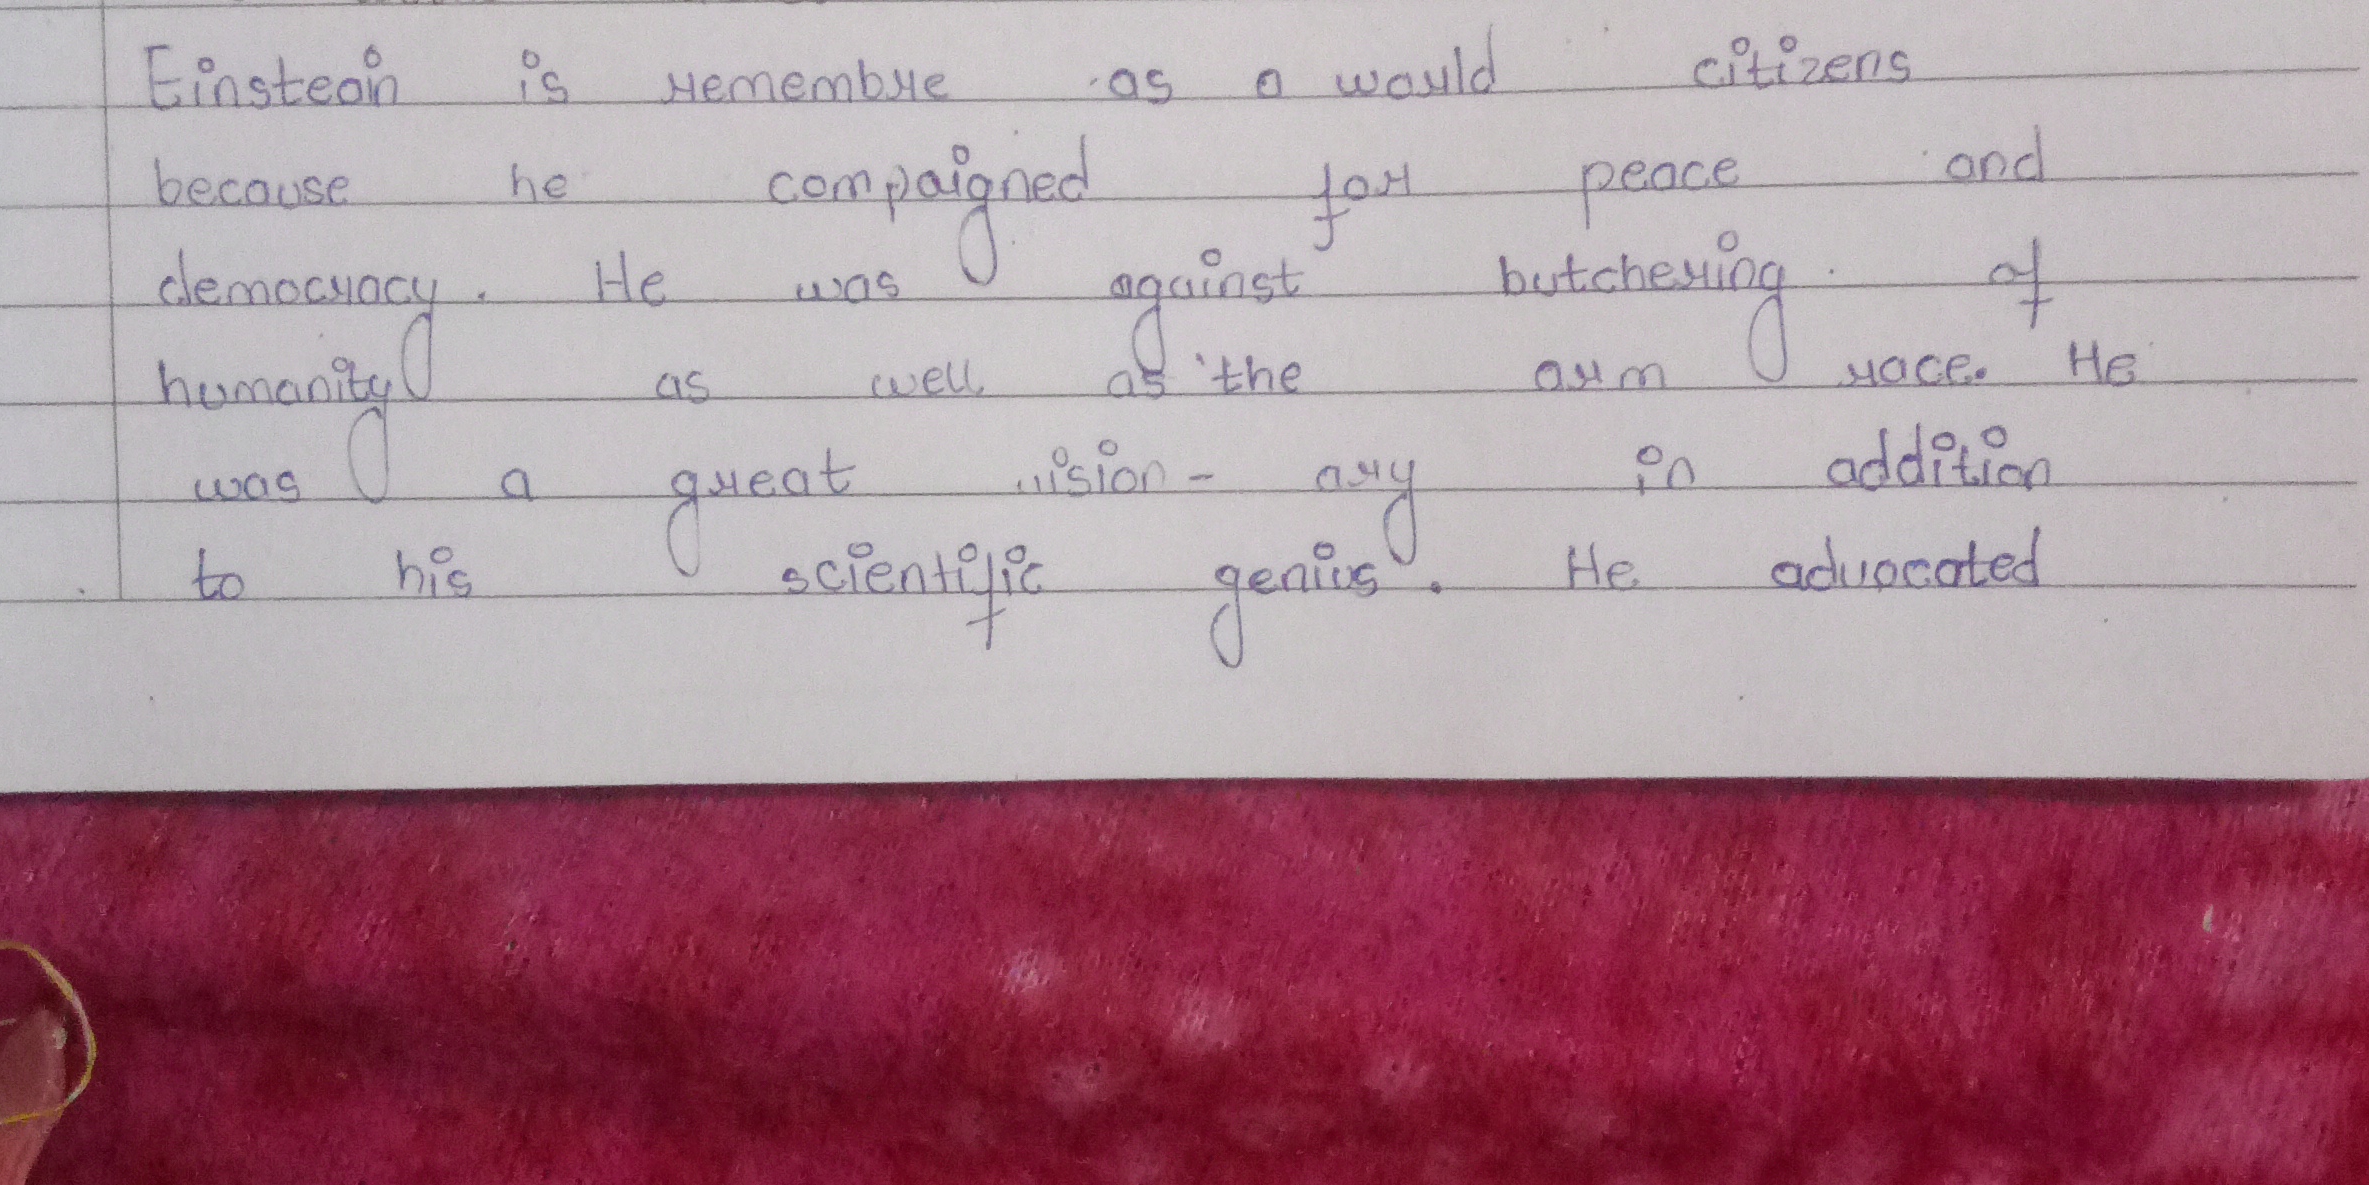 Einsteain is remembre as a would citizens
because he compaigned for peace and
democracy. He was against butchering of
humanity as well as the arm race. He
was a great vision- ary in addition
to his scientific genius. He advocated